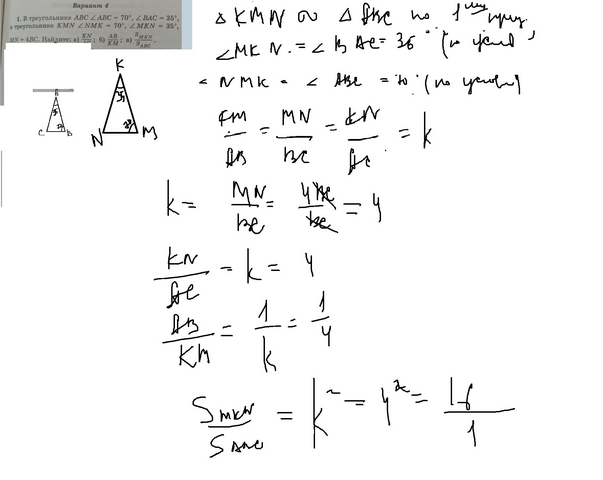 Вариант 4
1. В треугольнике ABC ∠ABC = 70°, ∠BAC = 35°,
а треугольнике KMN ∠NMK = 70°, ∠MKN = 35°,
MN = 4BC. Найдите: а) KN/AC; б) AB/KM; в) S_MKN/S_ABC.
K
N M
C
△ KMN ∾ △ ABC по 1
∠MKN = ∠BAC = 35 (по
∠NMK = ∠ABC = (по условию)
KM/AB = MN/BC = KN/AC = k
k = MN/BC = 4BC/BC = 4
KN/AC = k = 4
AB/KM = 1/k = 1/4
S_MKN/S_ABC = k² = 4² = 16/1